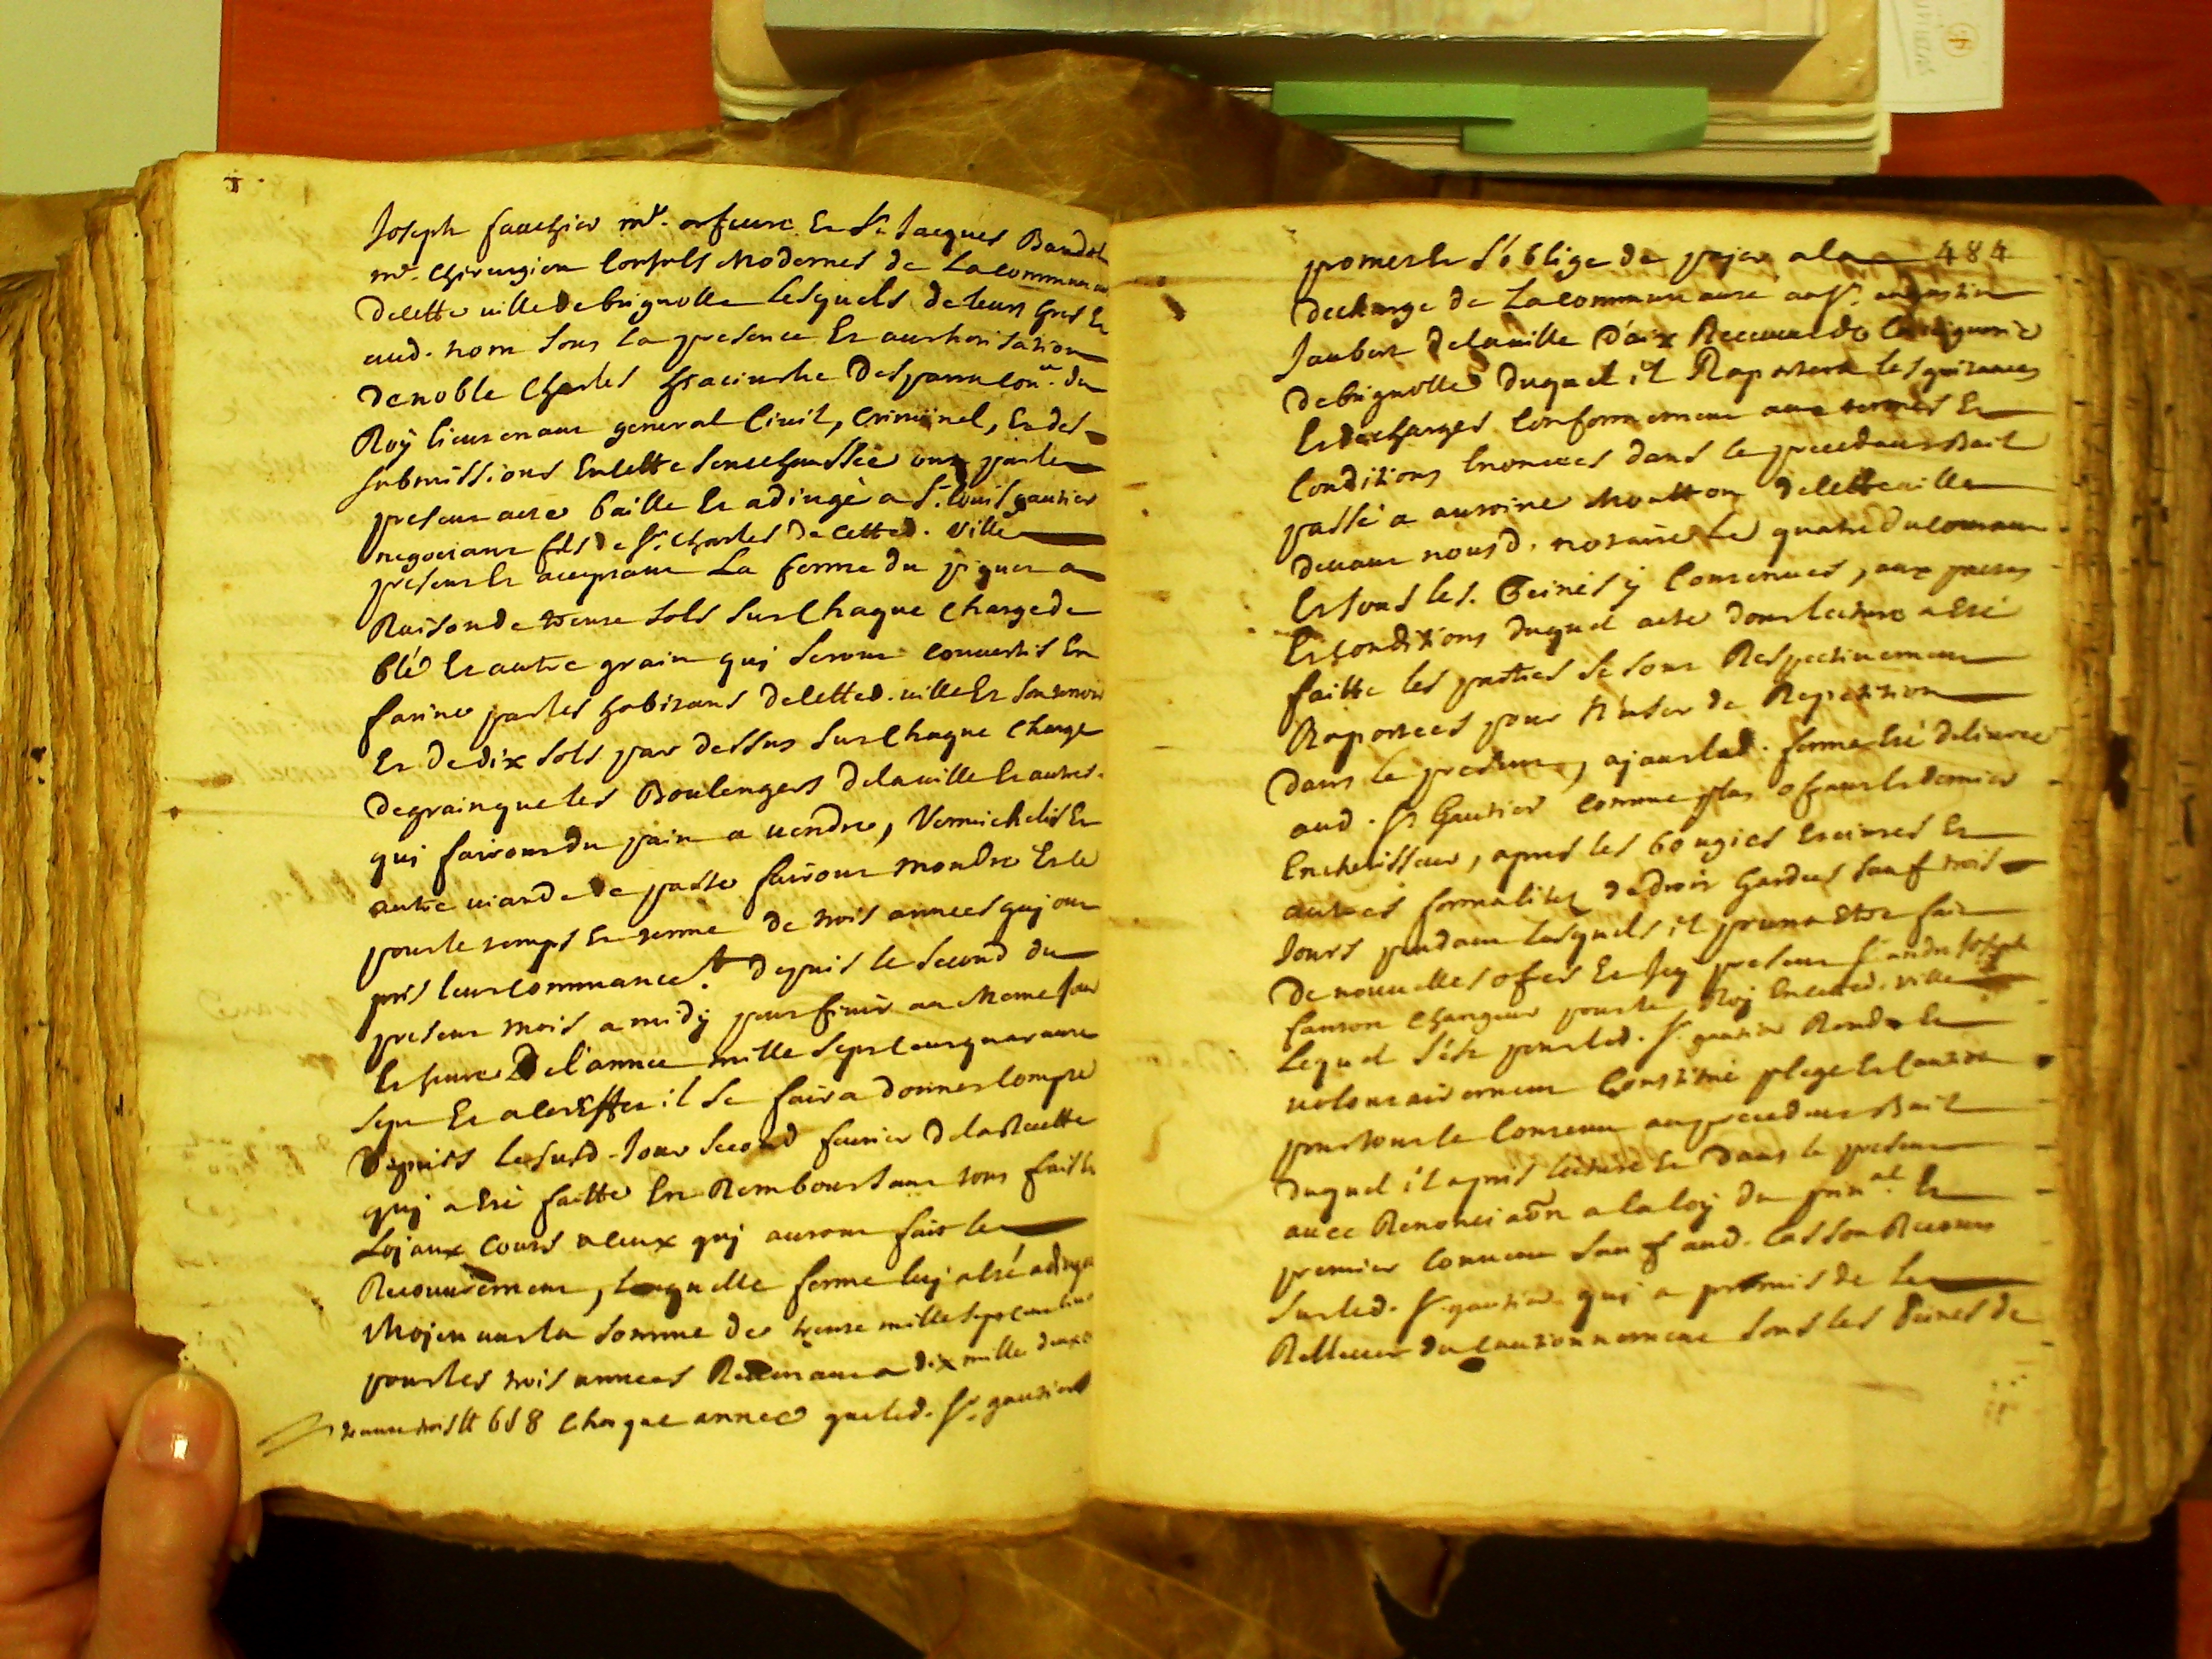 Joseph fauchier m.e orfeuvre Et Sr Jacques
m.e Chirurgien Consuls Modernes de La communau
decette ville de brignolle Lesquels de leurs gres Et
aud. nom sous La presence Et authorisation
de noble Charles hiacinthe Desparra Con.er du
Roÿ lieutenant general Civil, Criminel, Et des
submissions En cette seneschaussée ont par le
present acte baillé Et adjugé a Sr. Louis gautier
negotiant fils de Sr. Charles de cetted. ville
present Et acceptant La ferme du piquet a
Raison de trente sols sur Chaque Charge de
blé Et autre grain qui seront convertis En
farine par les habitans de cetted. ville Et son terroir
Et de dix sols par dessus sur Chaque Charge
de grain que les Boulengers de la ville Et autres
qui fairont du pain a vendre, Vermichelis Et
autre viande de paste fairont moudre Et ce
pour le temps Et terme de trois annees quj ont
pris leur commancem.t depuis le second du
present mois a midÿ pour finir au meme jour
Et heure De l'année mille sept cent quarante
sept Et a cet Effet il se faira donner compte
Depuis le susd. Jour second fevrier de la Recette
quj a Eté faitte En Remboursant tous frais Et
Lojaux couts a ceux quj auront fait le
Recouvrement, Laquelle ferme luj a Eté adjugé
Mojenant la somme de trente mille sept cent
pour les trois annees Revenant a dix mille deux
trante trois tt 6 s 8 Chaque annee que led. Sr. gautier
484
promet Et s'oblige de pajer a la
decharge de La communauté au Sr. augustin
Jaubert de la ville D'aix Receveur de la viguerie
de brignolle duquel il Raportera les quitances
Et decharges Conformement aux termes Et
Conditions Enoncees dans le precedant Bail
passé a antoine Moutton de cette ville
devant nous d. notaire Le quatre du courant
Et sous les Peines ÿ Contenues, aux pactes
Et conditions duquel acte dont lecture a Eté
faitte les parties se sont Respectivement
Raportees pour N'user de Repetition
dans le present, ajant lad. ferme Eté delivree
aud. Sr. Gautier comme plus ofrant Et dernier
Encherisseur, apres les bougies Eteintes Et
autres formalites de droit Gardees sauf trois
Jours pendant lesquels il pourra Etre fait
de nouvelles ofres Et Icy present Sr. andre Joseph
fanton changeur pour le Roj En cetted. ville
Lequel s'est pour led. Sr. gautier Rendu Et
volontairement Constitué plege Et caution
pour tout le Contenu au precedant Bail
duquel il a pris lecture Et dans le present
avec Renonciaôn a la loÿ du prin.al Et
premier convenu sauf aud. cas son Recours
sur led. Sr. gautier qui a promis de le
Rellever du cautionnement sous les Peines de